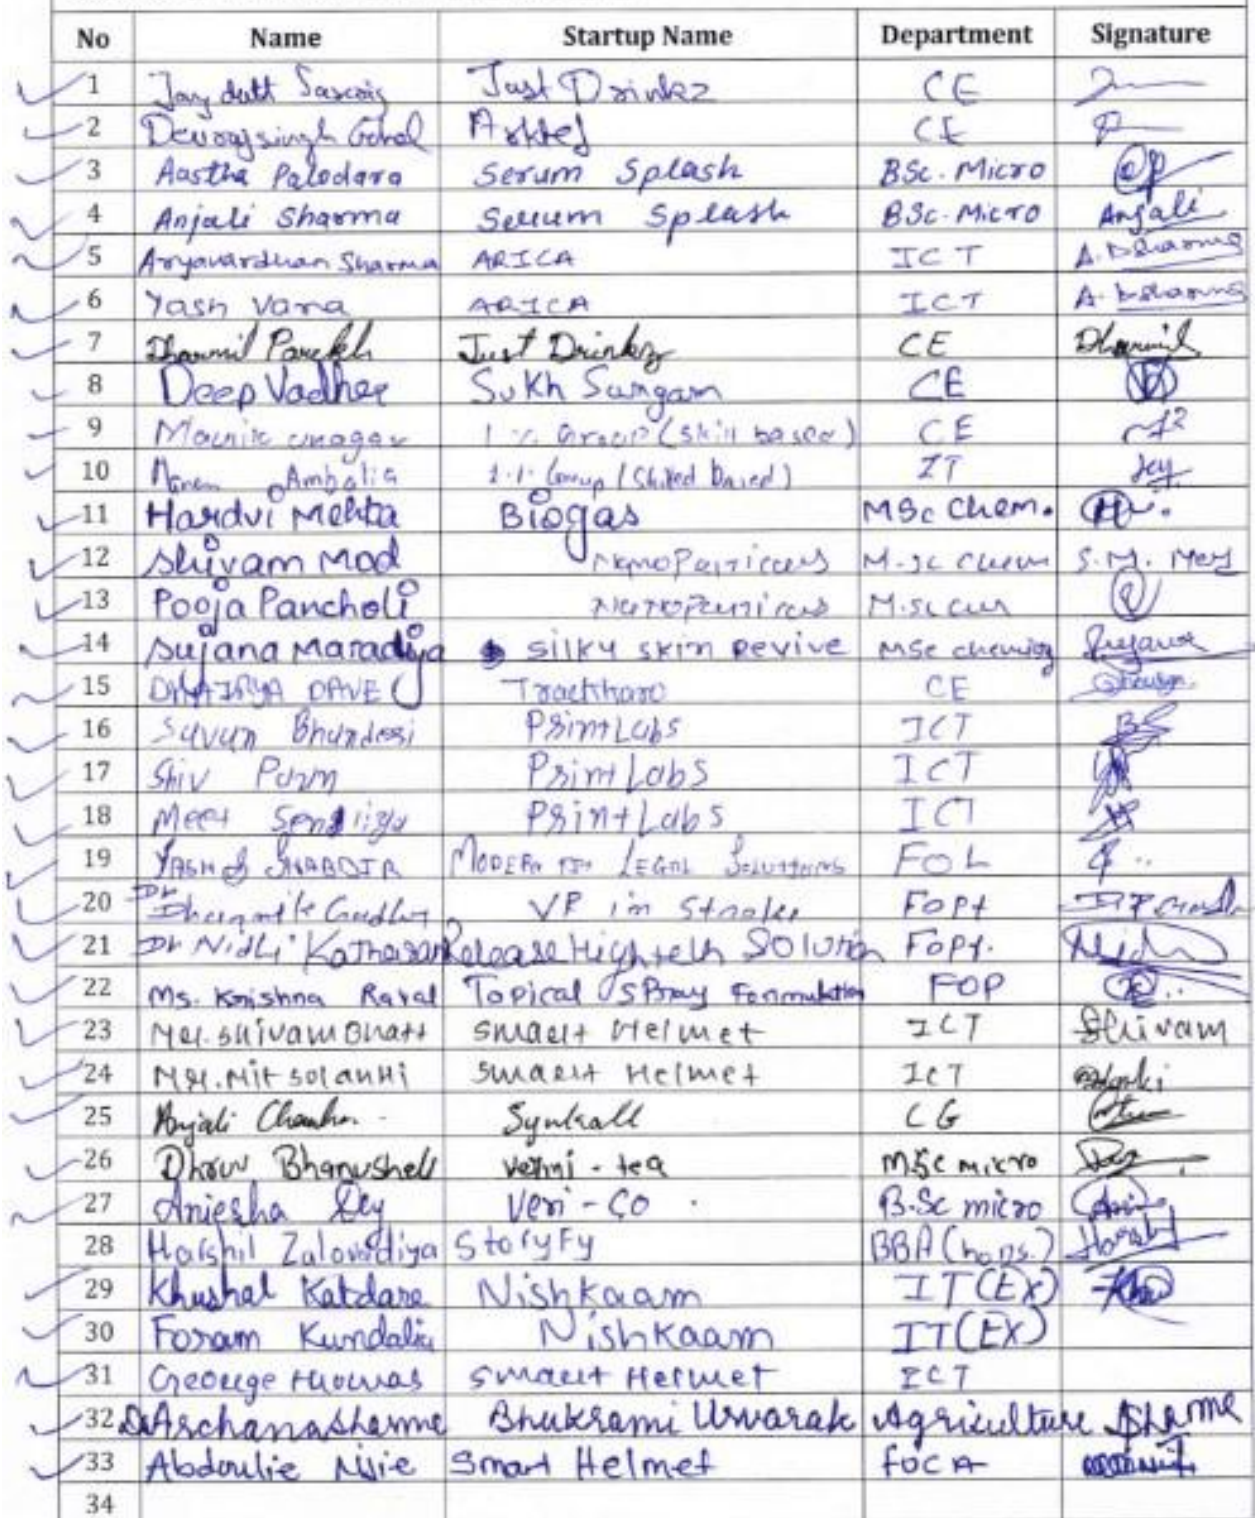 No Name Startup Name Department Signature
1 Jaydutt Just Drinkz CE
2 Devrajsingh Gohel CE
3 Aastha Palodara Serum Splash BSc. Micro
4 Anjali Sharma Serum Splash BSc. Micro Anjali
5 Aryavardhan Sharma ARICA ICT A. Dsharma
6 Yash Vara ARICA ICT A. Dsharma
7 Dharmil Parekh Just Drinkz CE Dharmil
8 Deep Vadher Sukh Sangam CE
9 Maulik unagar 1 % Group (skill based) CE
10 Ambalia 1% Group (Skilled Based) IT
11 Hardvi Mehta Biogas MSc Chem.
12 Shivam Mod NanoParticles M.sc Chem
13 Pooja Pancholi NanoParticles M.sc
14 Sujana Maradiya silky skin Revive MSc chemistry Sujana
15 DAVE CE
16 Savan Bhundesi PrintLabs ICT
17 Shiv PrintLabs ICT
18 Meet PrintLabs ICT
19 LEGAL FOL
20 Dr VR in Stroke FOPt
21 Dr Nidhi Release Hightech Solution FOPt.
22 Ms. Krishna Raval Topical Spray Formulation FOP
23 Mr. Shivam Bhatt Smart Helmet ICT Shivam
24 Mr. Mit Solanki Smart Helmet ICT
25 Anjali CE
26 Dhruv Bhanusheli Vermi-tea M.Sc micro
27 Aniesha Dey Veri-Co B.Sc micro
28 Harshil Zalavadiya StoryFy BBA (hons.) Harshil
29 Khushal Katdare Nishkaam IT(EX)
30 Foram Kundalia Nishkaam IT(EX)
31 George Thomas Smart Helmet ICT
32 Dr Archana Sharma Bhukrami Urvarak Agriculture ASharma
33 Abdoulie Njie Smart Helmet FOCA
34